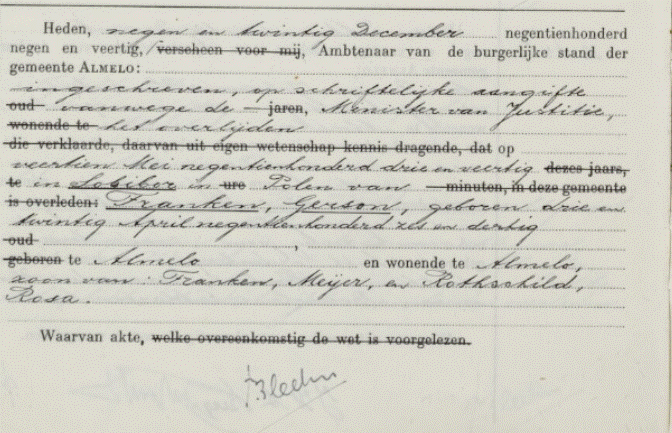 Heden, negen en twintig December negentienhonderd
negen en veertig, verscheen voor mij, Ambtenaar van de burgerlijke stand der
gemeente ALMELO:
ingeschreven, op schriftelijke aangifte
oud vanwege de jaren, Minister van Justitie,
wonende te het overlijden
die verklaarde, daarvan uit eigen wetenschap kennis dragende, dat op
veertien Mei negentienhonderd drie en veertig dezes jaars,
te in Sobibor in ure Polen van minuten, in deze gemeente
is overleden: Franken, Gerson, geboren drie en
twintig April negentienhonderd zes en dertig
oud ,
geboren te Almelo en wonende te Almelo,
zoon van: Franken, Meijer, en Rothschild,
Rosa.
Waarvan akte, welke overeenkomstig de wet is voorgelezen.